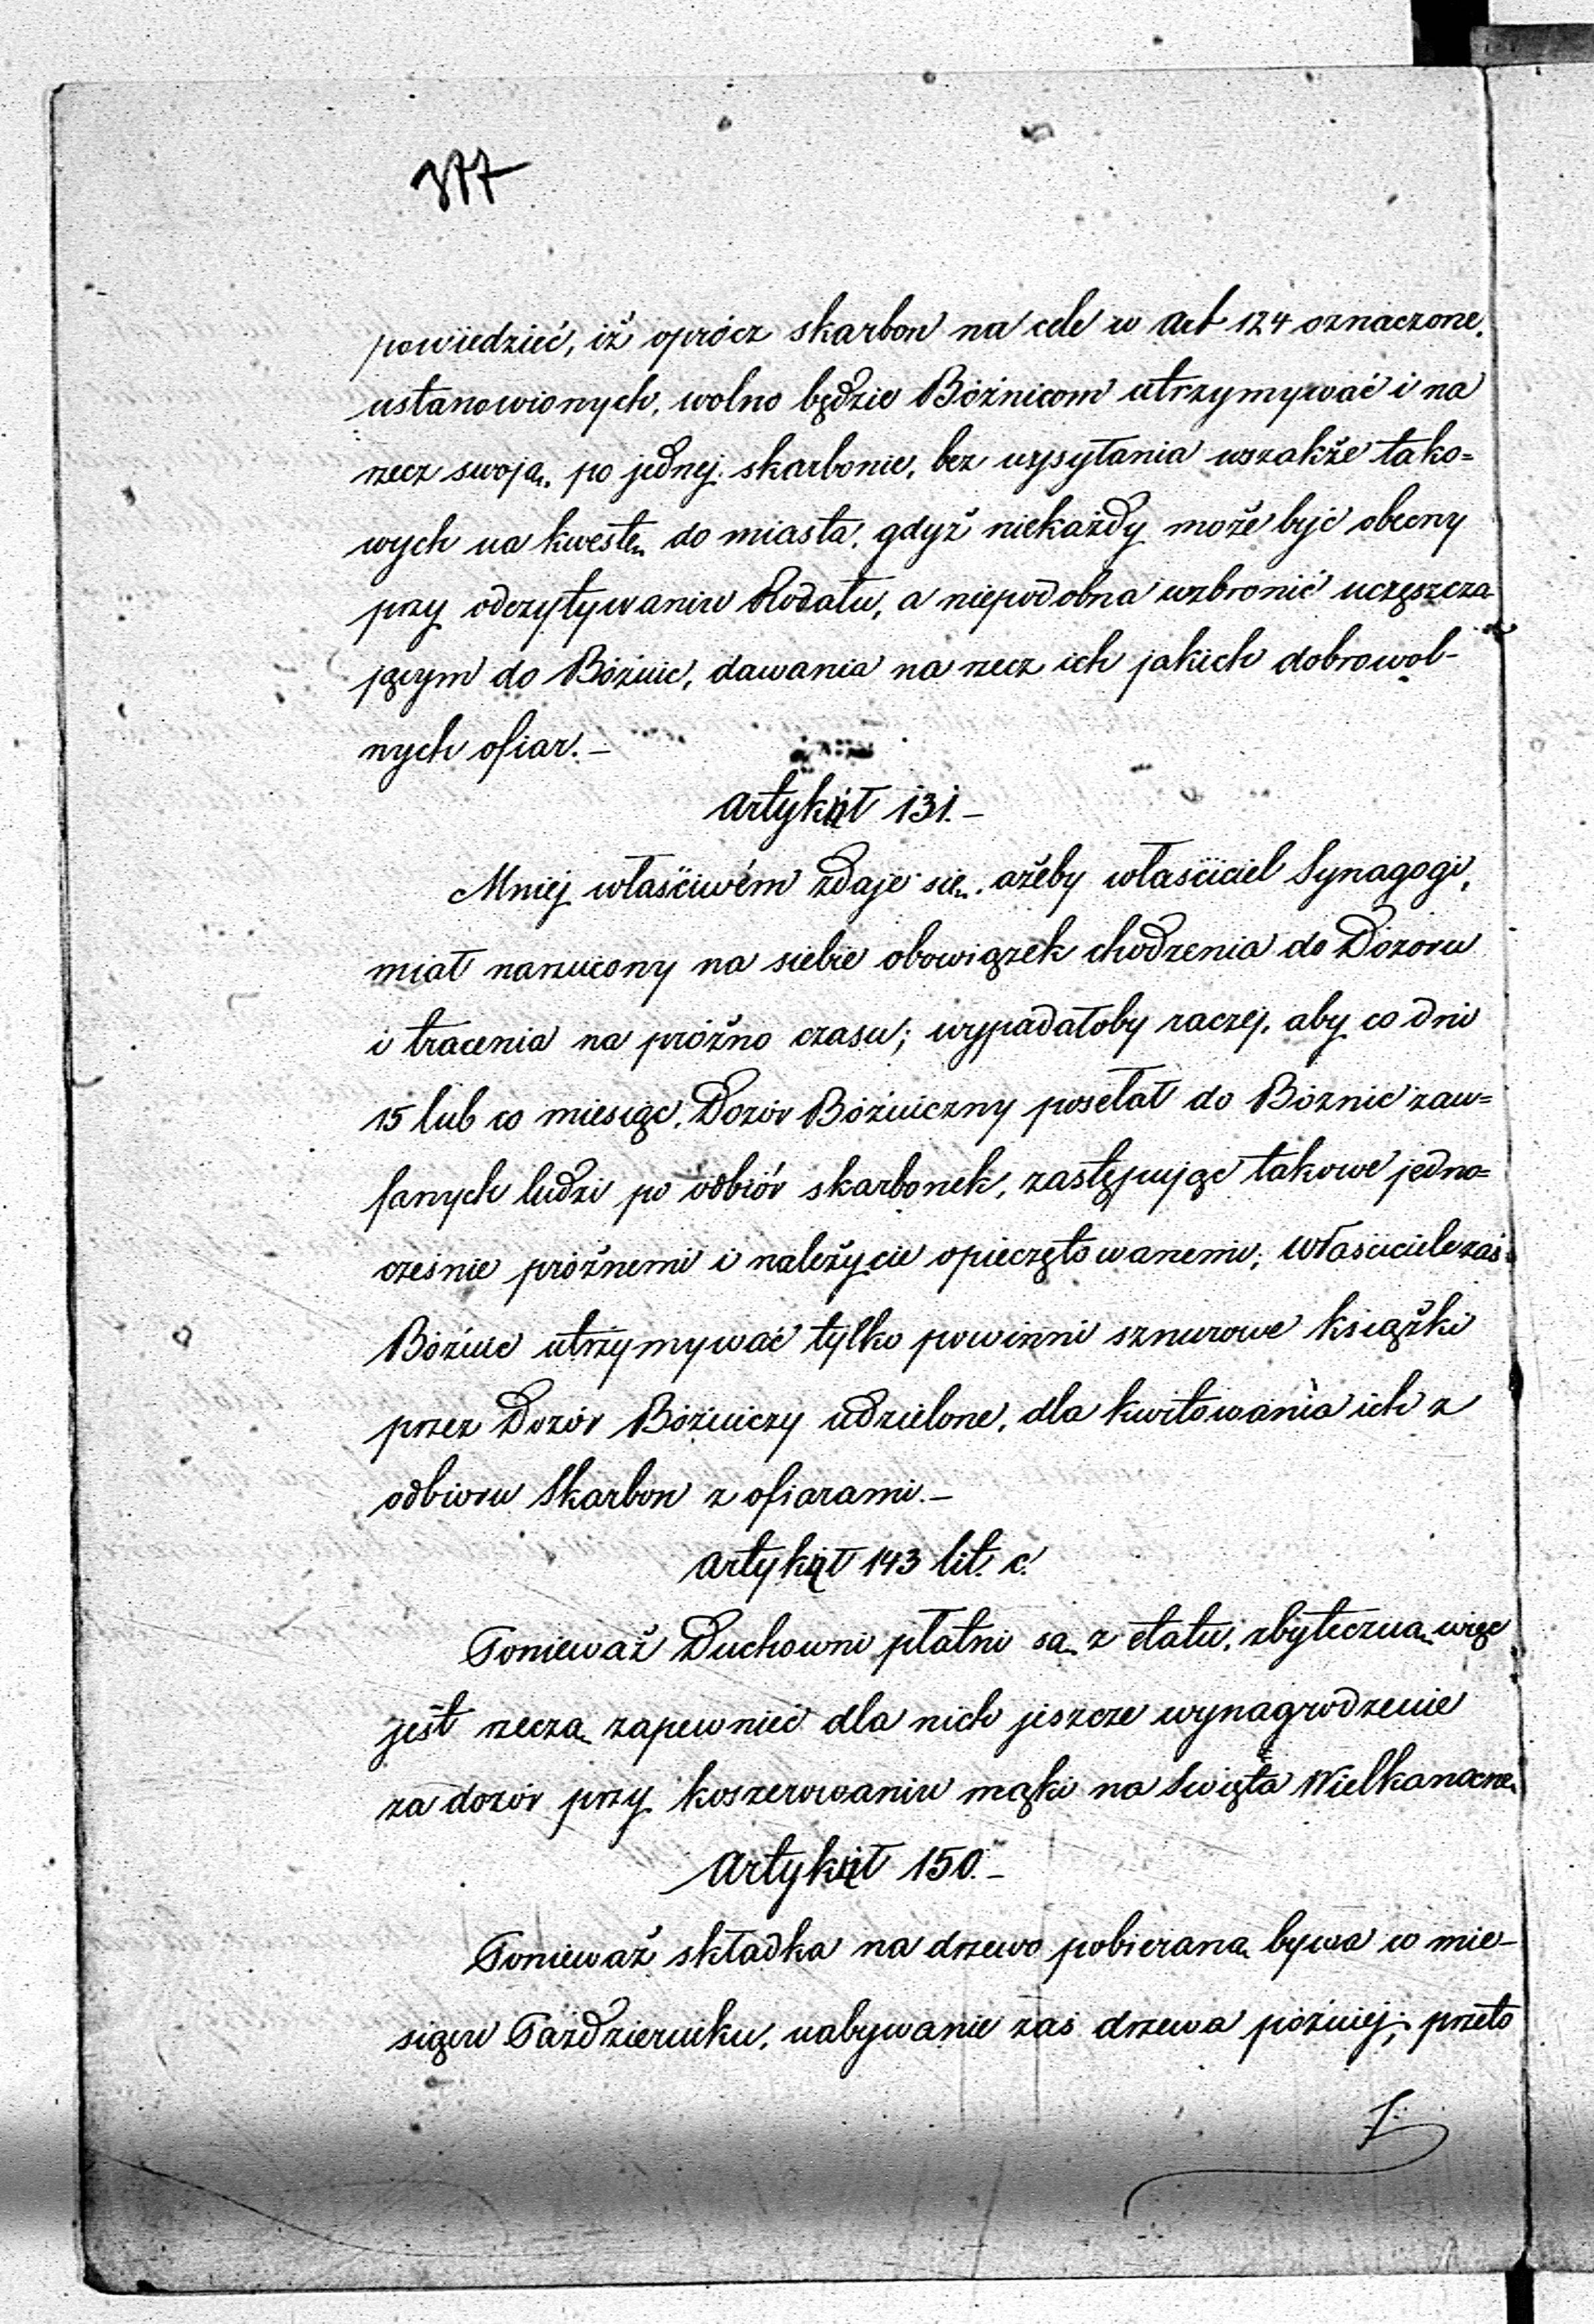 377
powiedzieć, iż oprócz skarbon na cele w Art 124 oznaczone,
ustanowionych, wolno będzie Bóżnicom utrzymywać i na
rzecz swoją, po jednej skarbonie, bez wysyłania wszakże tako=
wych na kwestę do miasta, gdyż niekażdy może być obecny
przy odczytywaniu Rodału, a niepodobna wzbronić uczęszcza
jącym do Bóżnic, dawania na rzecz ich jakich dobrowol-
nych ofiar.–
Artykuł 131.–
Mniej właściwém zdaje się, ażeby właściciel Synagogi,
miał narzucony na siebie obowiązek chodzenia do Dozoru
i tracenia na próżno czasu; wypadałoby raczej, aby co dni
15 lub co miesiąc, Dozór Bóżniczny posełał do Bóżnic zau=
fanych ludzi po odbiór skarbonek, zastępując takowe jedno=
cześnie próżnemi i należycie opieczętowanemi; właściciele zaś
Bóżnic utrzymywać tylko powinni sznurowe książki
przez Dozór Bóżniczy udzielone, dla kwitowania ich z
odbioru Skarbon z ofiarami.–
Artykuł 143 lit. c.
Ponieważ Duchowni płatni są z etatu, zbyteczną więc
jest rzeczą zapewnieć dla nich jeszcze wynagrodzenie
za dozór przy koszerowaniu mąki na Święta Wielkanocne.
Artykuł 150.–
Ponieważ składka na drzewo pobieraną bywa w mie-
siącu Październiku, nabywanie zaś drzewa później; przeto